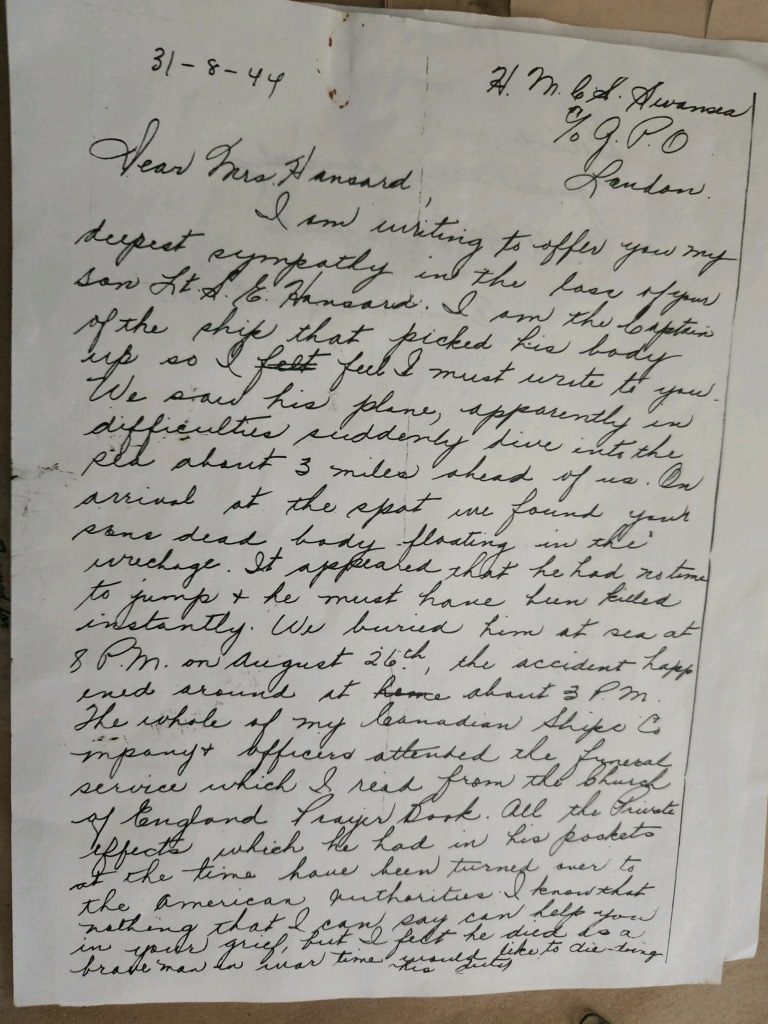 31-8-44
H. M. C. S. Swansea
c/o G. P. O
London.
Dear Mrs. Hansard,
I am writing to offer you my
deepest sympathy in the loss of your
son Lt. S. E. Hansard. I am the Captain
of the ship that picked his body
up so I felt feel I must write to you.
We saw his plane, apparently in
difficulties suddenly dive into the
sea about 3 miles ahead of us. On
arrival at the spot we found your
sons dead body floating in the
wreckage. It appeared that he had no time
to jump + he must have been killed
instantly. We buried him at sea at
8 P.M. on August 26th, the accident happ
ened around at home about 3 P.M.
The whole of my Canadian Ships Co
mpany + officers attended the funeral
service which I read from the Church
of England Prayer Book. All the Private
effects which he had in his pockets
at the time have been turned over to
the American Authorities. I know that
nothing that I can say can help you
in your grief, but I felt he died as a
brave man in war time would like to die - doing
his duty